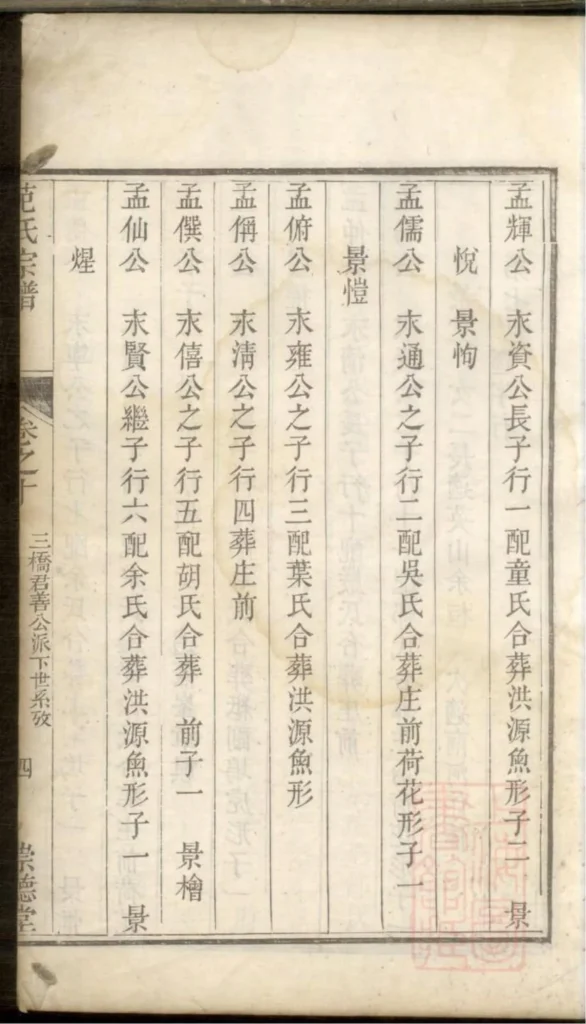 孟輝公 永資公長子行一配童氏合葬洪源魚形子二 景
悅 景恂
孟儒公 永通公之子行二配吳氏合葬庄前荷花形子一
景愷
孟俯公 永雍公之子行三配葉氏合葬洪源魚形
孟俏公 永清公之子行四葬庄前
孟僎公 永僖公之子行五配胡氏合葬 前子一 景檜
孟仙公 永賢公繼子行六配余氏合葬洪源魚形子一 景
煋
范氏宗譜
卷之十
三橋君善公派下世系攷
四
崇德堂